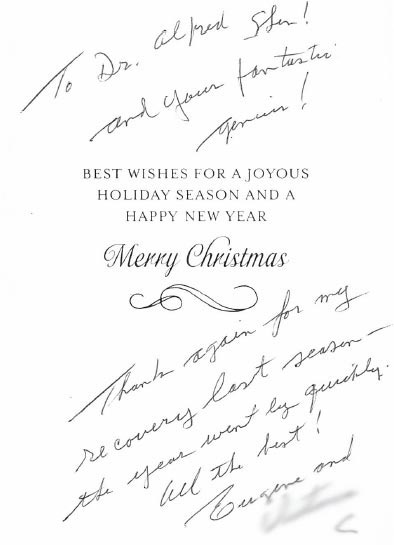 To Dr. Alfred Shen!
and your fantastic
genius!
BEST WISHES FOR A JOYOUS
HOLIDAY SEASON AND A
HAPPY NEW YEAR
Merry Christmas
Thank again for my
recovery last season—
the year went by quickly.
All the best!
Eugene and